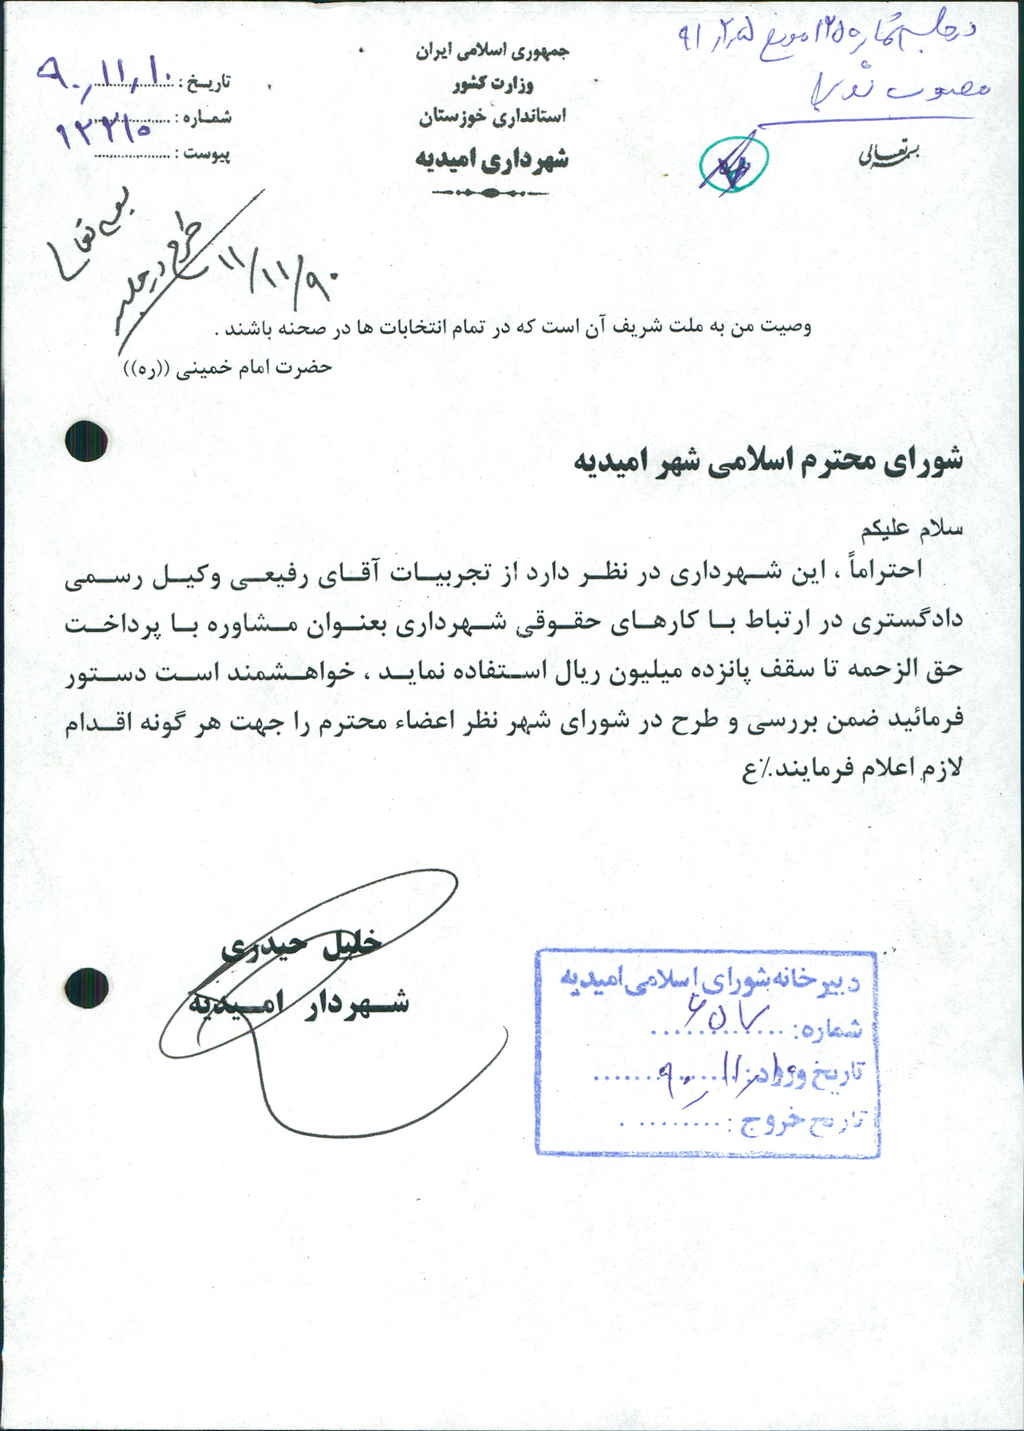 در جلسه شماره ۱۲۵ مورخ ۹۱٫۲٫۵
مصوب شد
بسمه تعالی
جمهوری اسلامی ایران
وزارت کشور
استانداری خوزستان
شهرداری امیدیه
تاریخ : ۹۰٫۱۱٫۱۰
شماره : ۱۲۲۱۰
پیوست :
بسمه تعالی
طرح در جلسه
۹۰/۱۱/۱۱
وصیت من به ملت شریف آن است که در تمام انتخابات ها در صحنه باشند .
حضرت امام خمینی ((ره))
شورای محترم اسلامی شهر امیدیه
سلام علیکم
احتراماً ، این شهرداری در نظر دارد از تجربیات آقای رفیعی وکیل رسمی
دادگستری در ارتباط با کارهای حقوقی شهرداری بعنوان مشاوره با پرداخت
حق الزحمه تا سقف پانزده میلیون ریال استفاده نماید ، خواهشمند است دستور
فرمائید ضمن بررسی و طرح در شورای شهر نظر اعضاء محترم را جهت هر گونه اقدام
لازم اعلام فرمایند./ع
خلیل حیدری
شهردار امیدیه
دبیرخانه شورای اسلامی امیدیه
شماره: ۶۵۷
تاریخ ورود: ۹۰٫۱۱٫۱۰
تاریخ خروج :